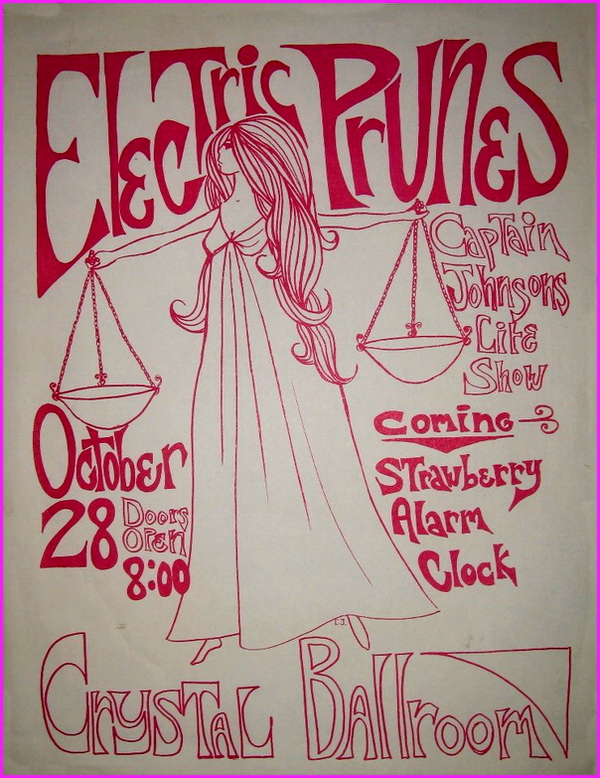 Electric Prunes
Captain
Johnsons
Lite
Show
Coming
Strawberry
Alarm
Clock
October
28 Doors
Open
8:00
L.J.
Crystal Ballroom